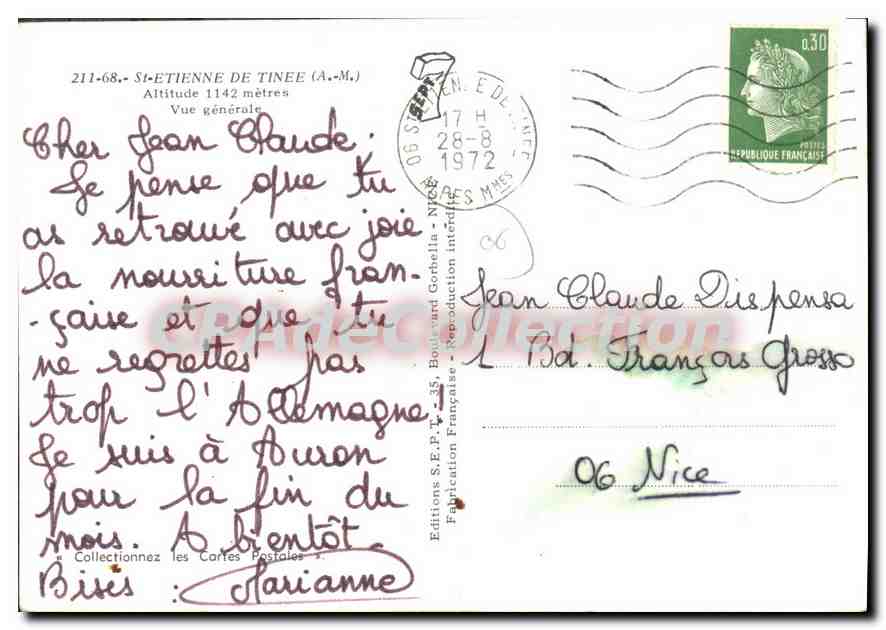 211-68.- St-ETIENNE DE TINEE (A.-M.)
Altitude 1142 mètres
Vue générale
Cher Jean Claude.
Je pense que tu
as retrouvé avec joie
la nourriture fran-
-çaise et que tu
ne regrettes pas
trop l'Allemagne!
Je suis à Auron
pour la fin du
mois. A bientôt.
"Collectionnez les Cartes Postales"
Bises : Marianne
Editions S.E.P.T. - 35, Boulevard Gorbella - NICE
Fabrication Française - Reproduction interdite
SEPT
06 ST ETIENNE DE TINEE
17 H
28-8
1972
ALPES MMES
0,30
POSTES
REPUBLIQUE FRANÇAISE
06
Jean Claude Dispensa
1 Bd. François Grosso
06 Nice
CPArteCollection